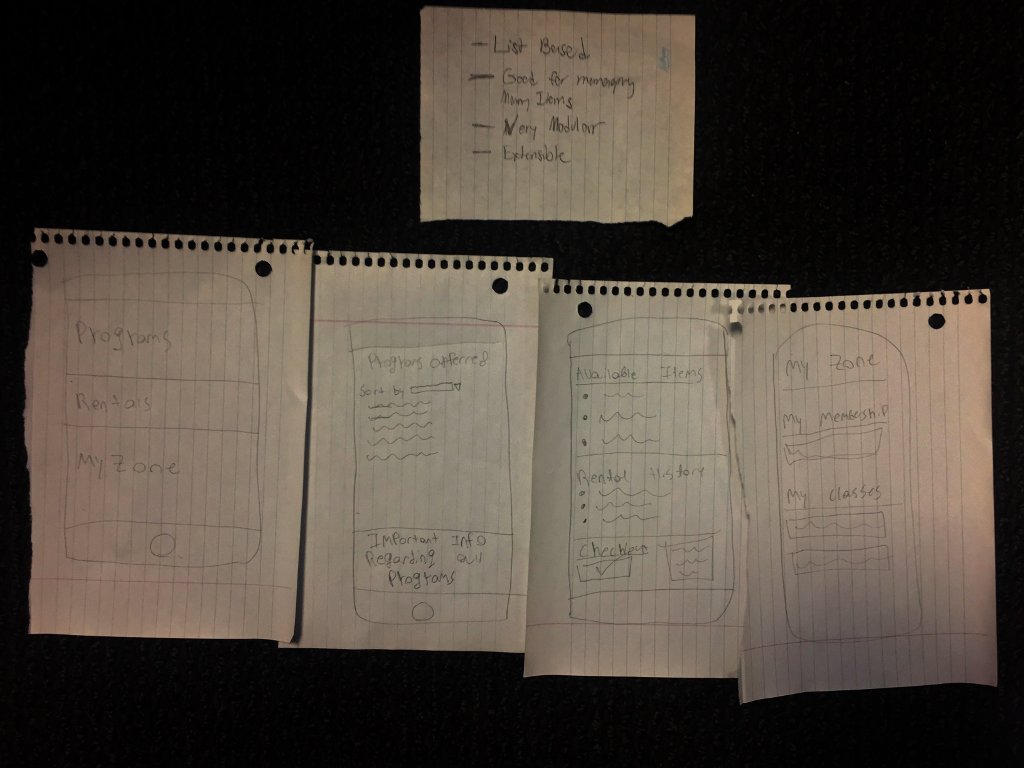 - List Based
- Good for managing
Many Items
- Very Modular
- Extensible
Programs
Rentals
My Zone
Programs offerred
Sort by
Important Info
Regarding all
Programs
Available Items
Rental History
Checkout
My Zone
My Membership
My Classes